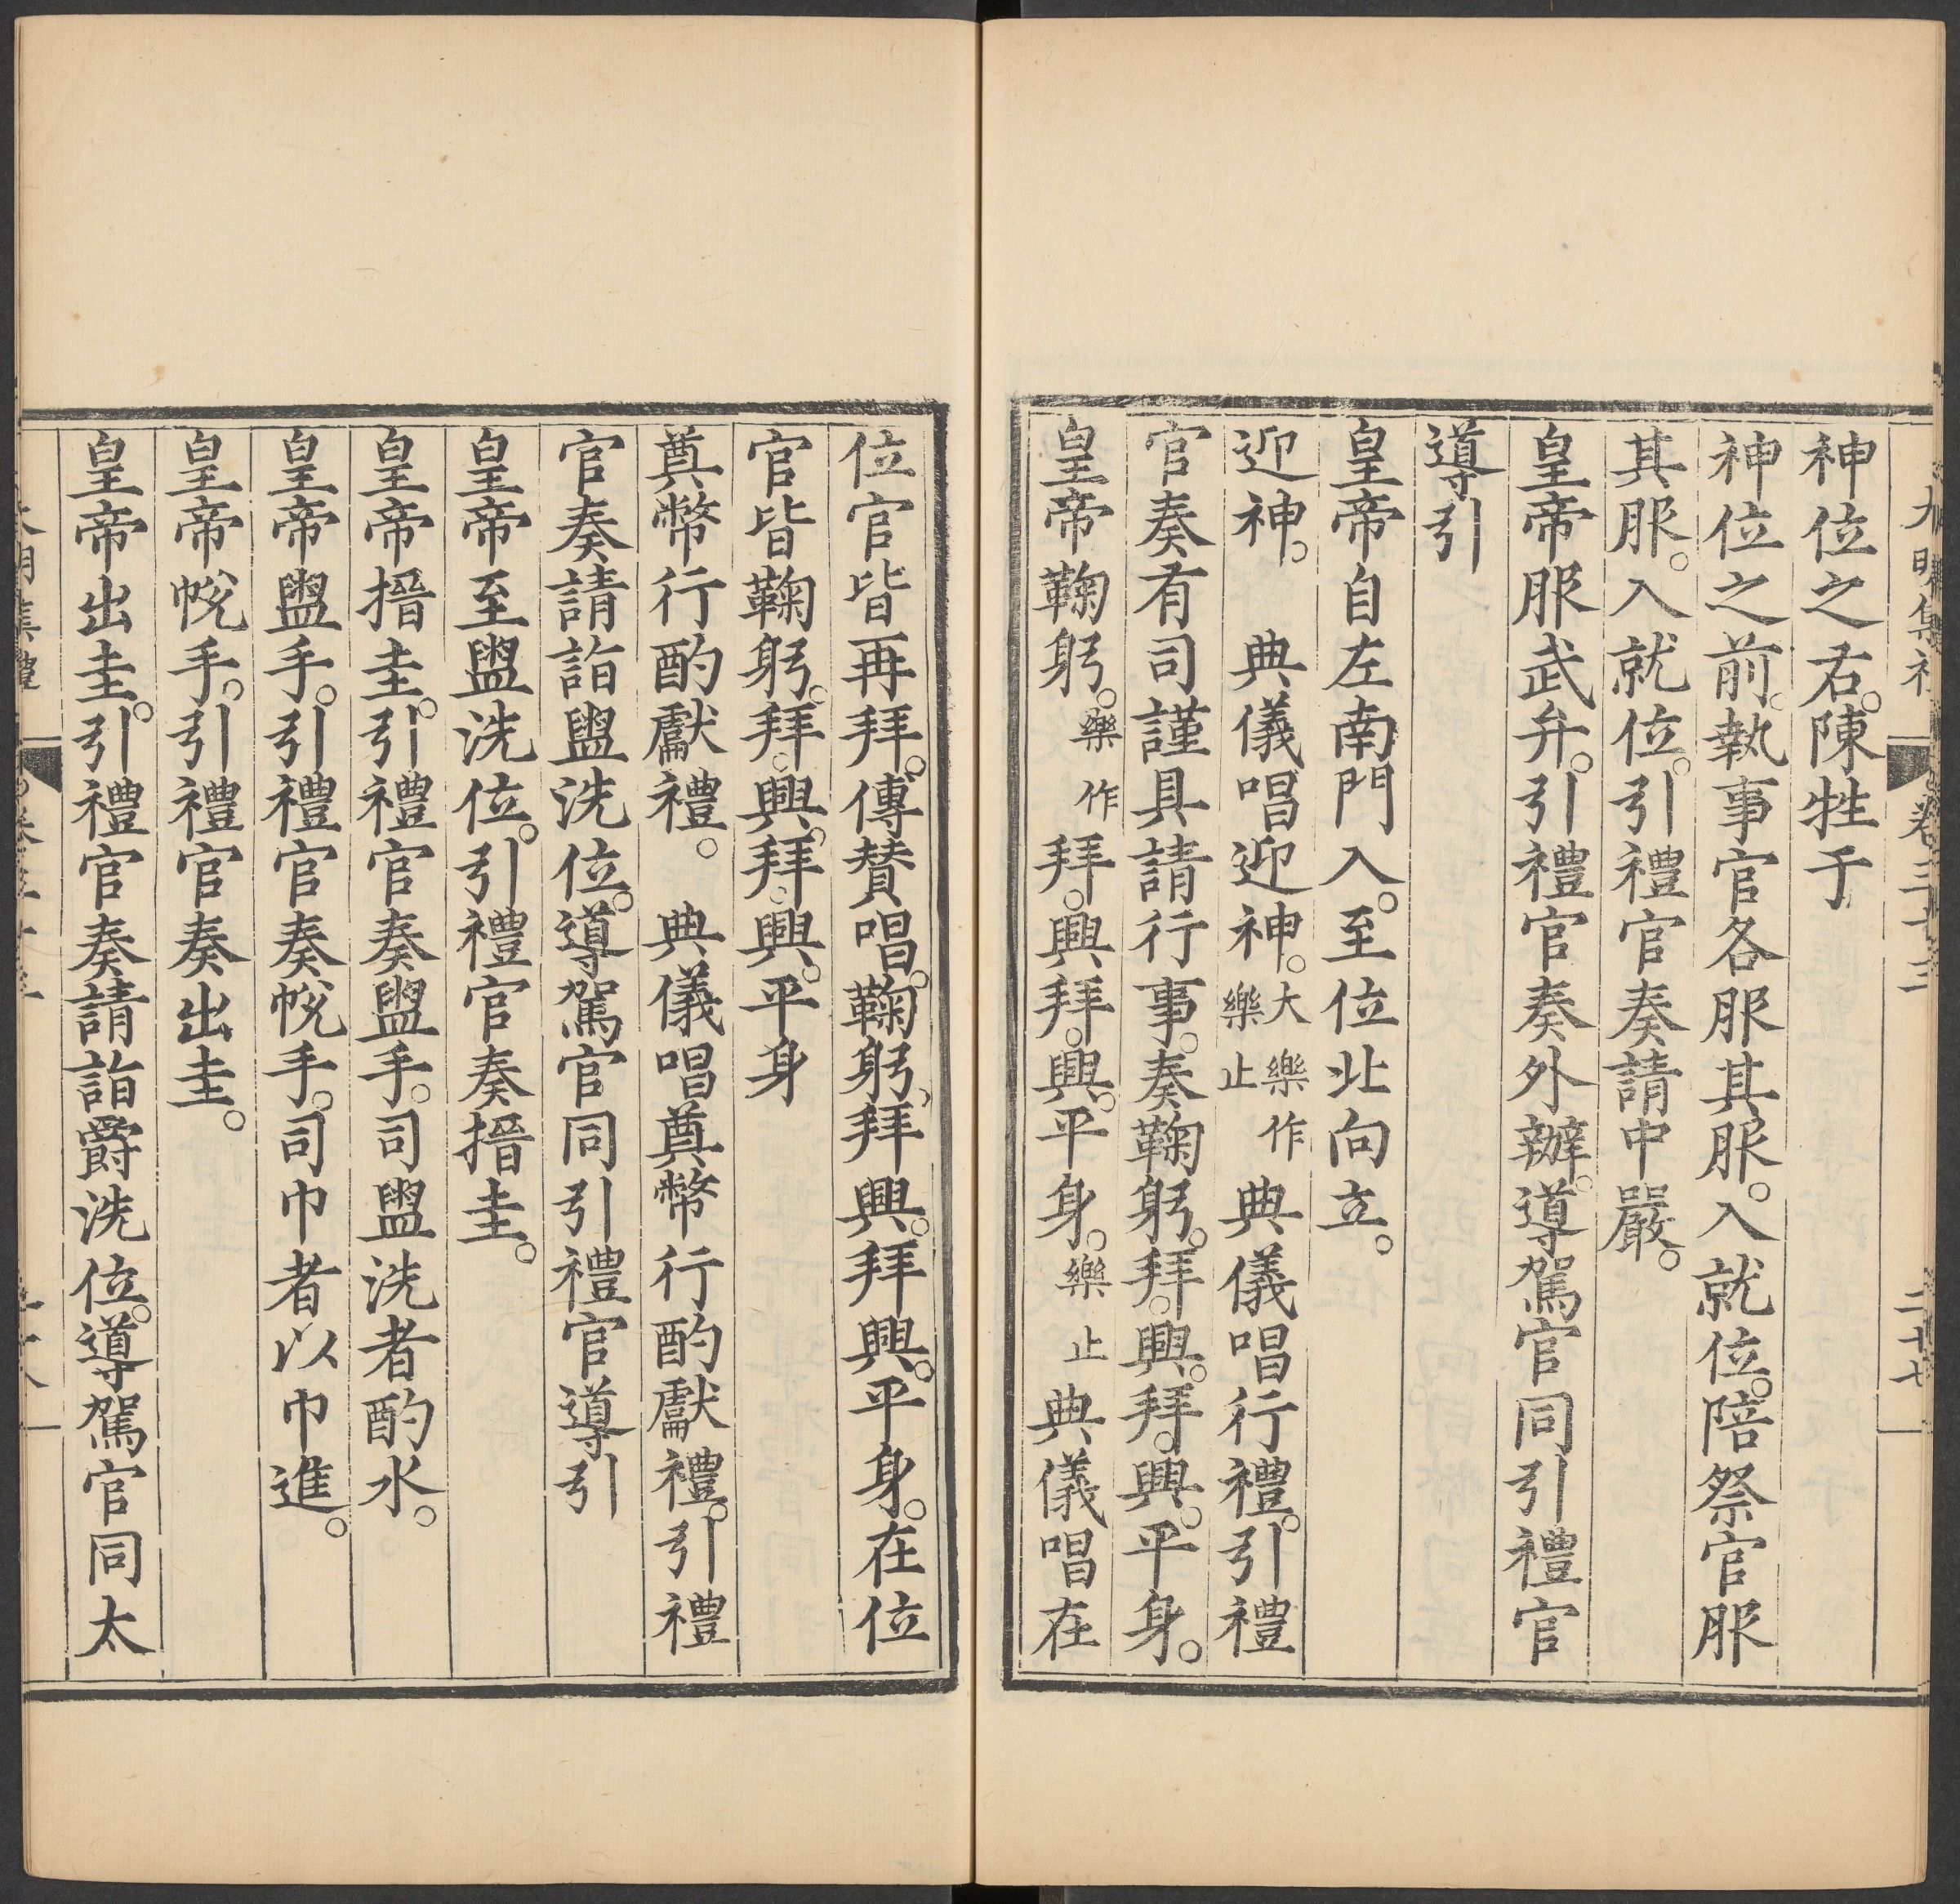 神位之右。陳牲于
神位之前。執事官各服其服。入就位。陪祭官服
其服。入就位。引禮官奏請中嚴。
皇帝服武弁。引禮官奏外辦。導駕官同引禮官
導引
皇帝自左南門入。至位北向立。
迎神。　典儀唱迎神。大樂作樂止　典儀唱行禮。引禮
官奏有司謹具請行事。奏鞠躬。拜。興。拜。興。平身。
皇帝鞠躬。樂作拜。興拜。興。平身。樂止　典儀唱在
位官皆再拜。傳贊唱。鞠躬、拜興。拜興。平身。在位
官皆鞠躬。拜。興。拜。興。平身
奠幣行酌獻禮。　典儀唱奠幣行酌獻禮。引禮
官奏請詣盥洗位。導駕官同引禮官導引
皇帝至盥洗位。引禮官奏搢圭。
皇帝搢圭。引禮官奏盥手。司盥洗者酌水。
皇帝盥手。引禮官奏帨手。司巾者以巾進。
皇帝帨手。引禮官奏出圭。
皇帝出圭。引禮官奏請詣爵洗位。導駕官同太